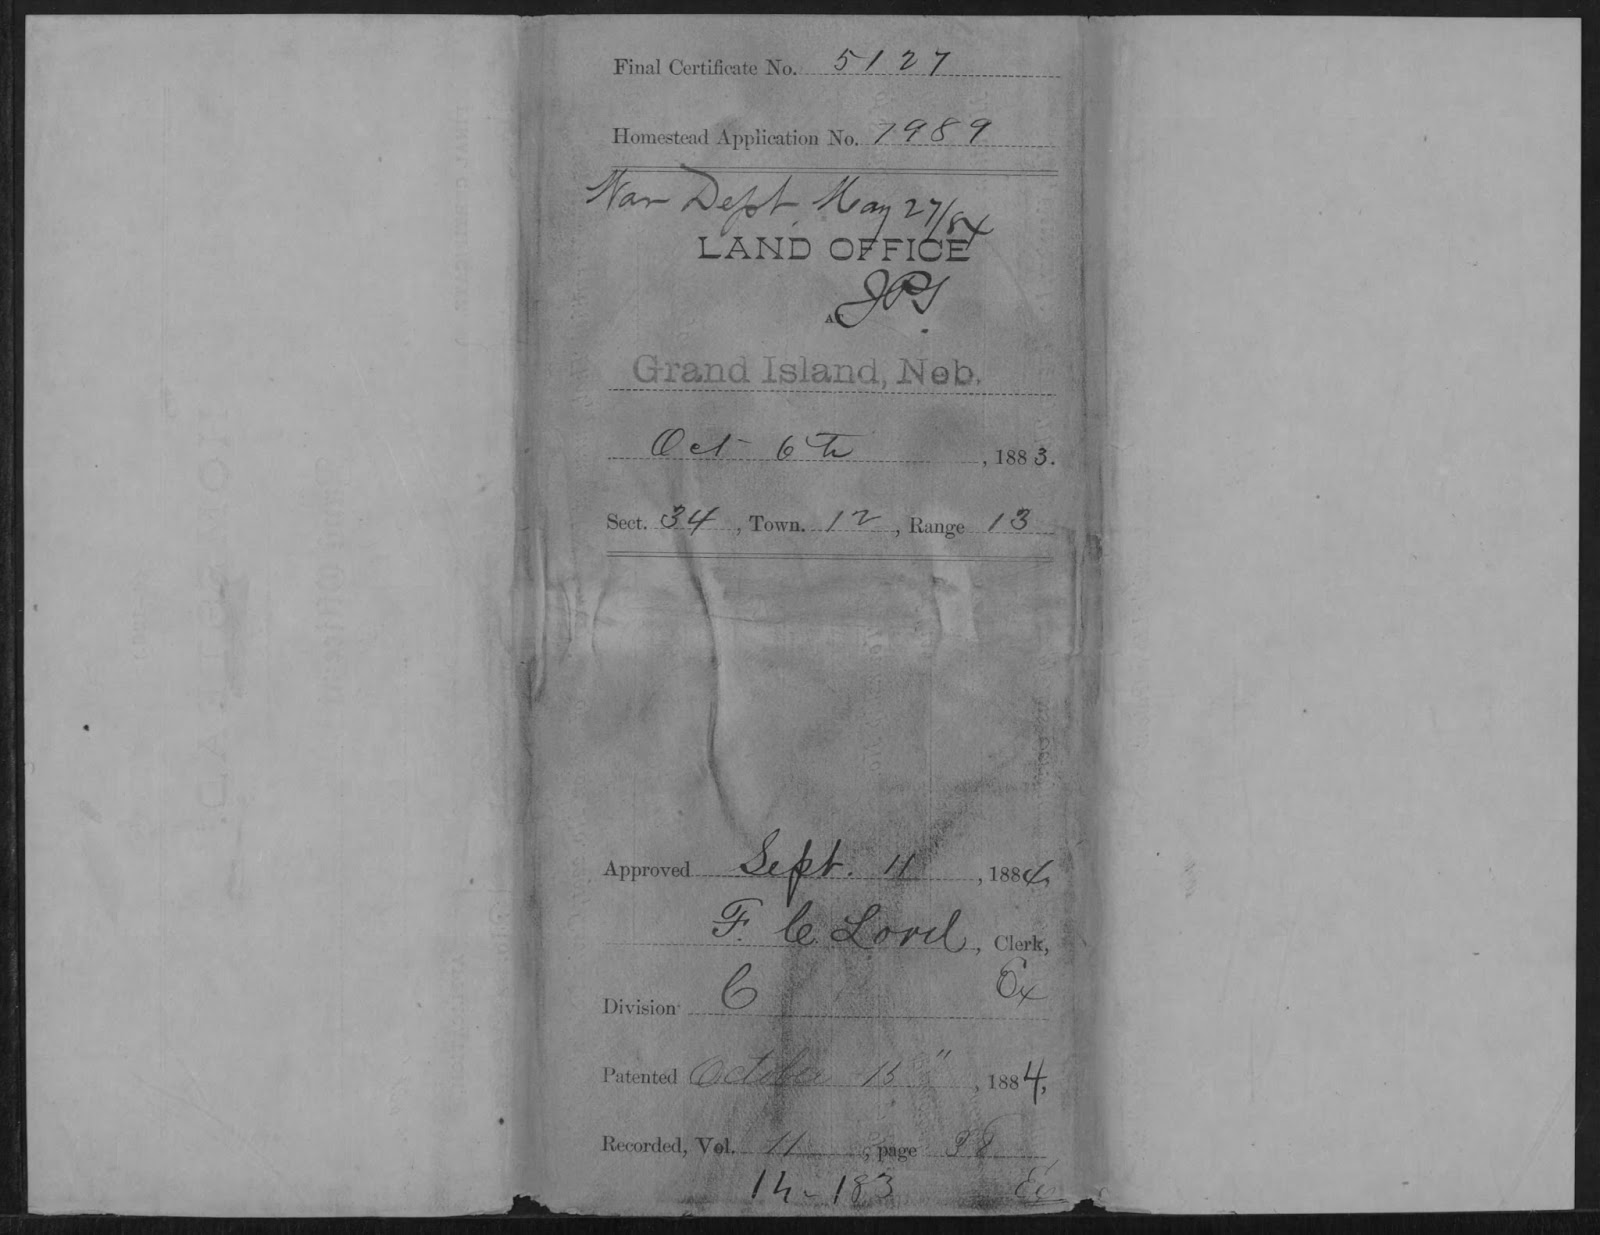 Final Certificate No. 5127
Homestead Application No. 7989
War Dept May 27/84
LAND OFFICE
JPS
AT
Grand Island, Neb.
Oct 6th, 1883.
Sect. 34, Town. 12, Range 13
Approved Sept. 11, 1884
F. C. Lord, Clerk,
Ex
Division C
Patented October 15", 1884,
Recorded, Vol. 11, page
14-183